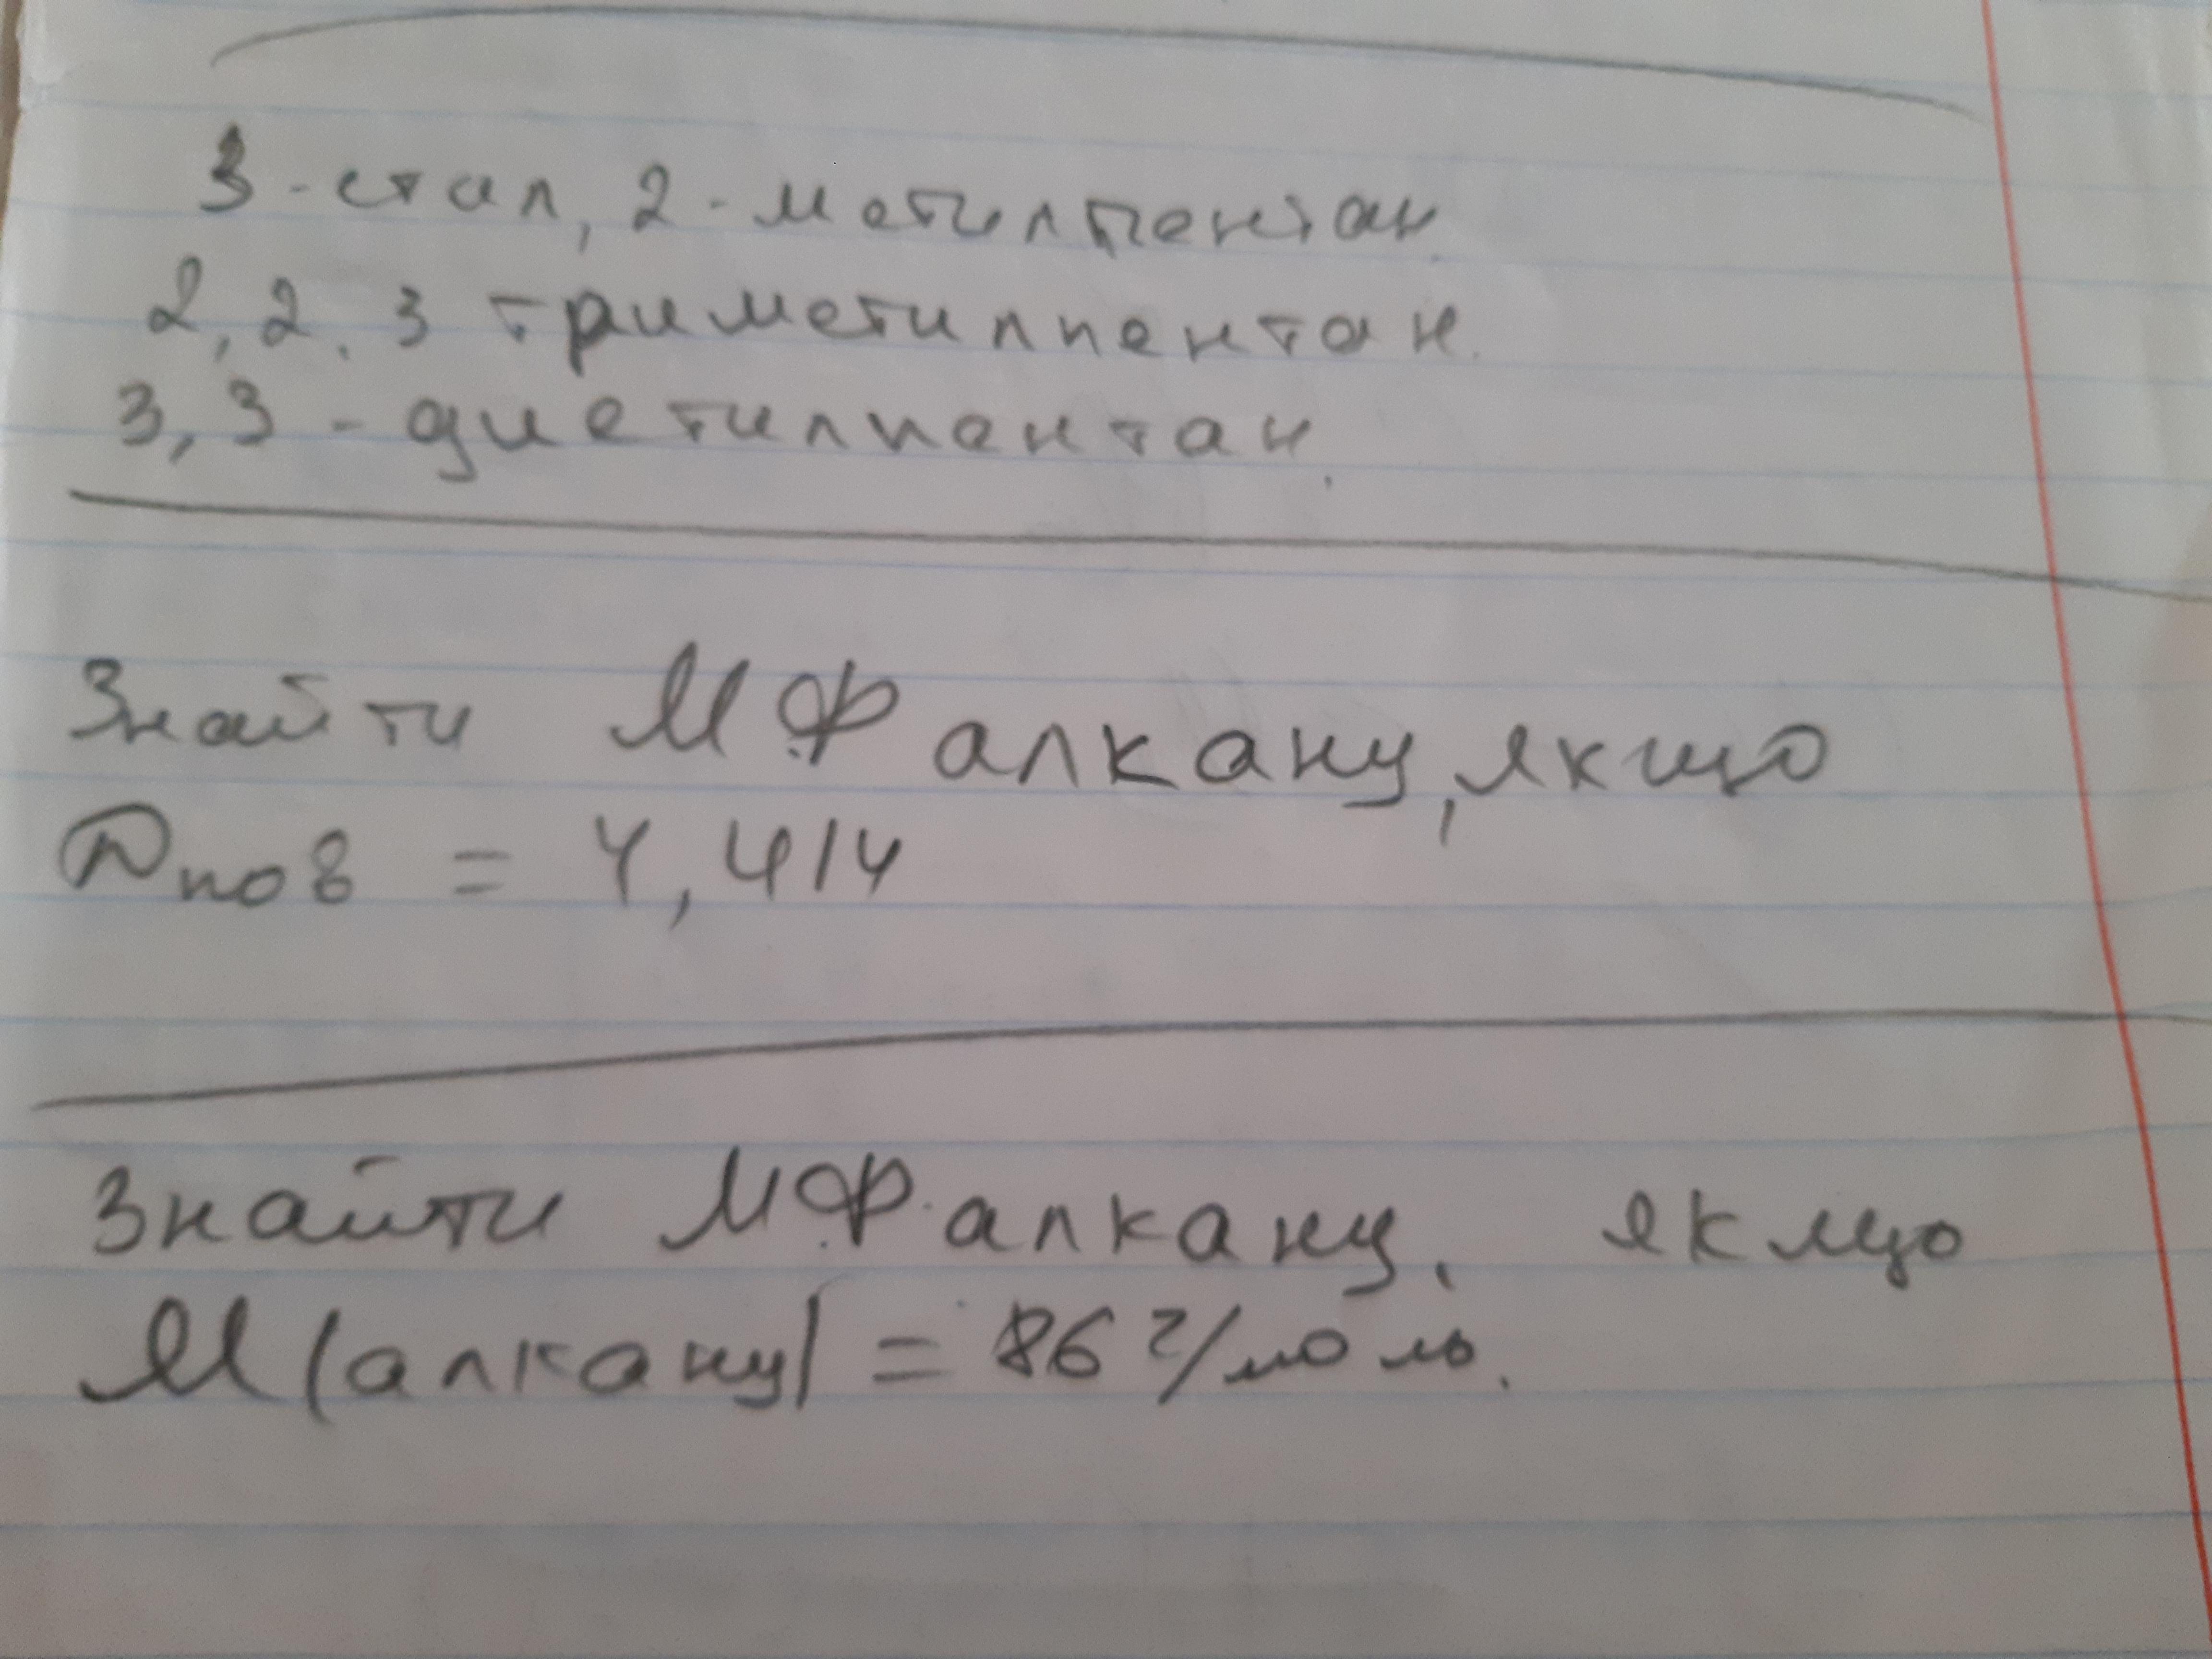 3-етил, 2-метилпентан
2,2,3 триметилпентан.
3,3-диетилпентан.
Знайти МФ алкану, якщо
Dпов = 4,414
Знайти МФ алкану, якщо
М(алкану) = 86 г/моль.